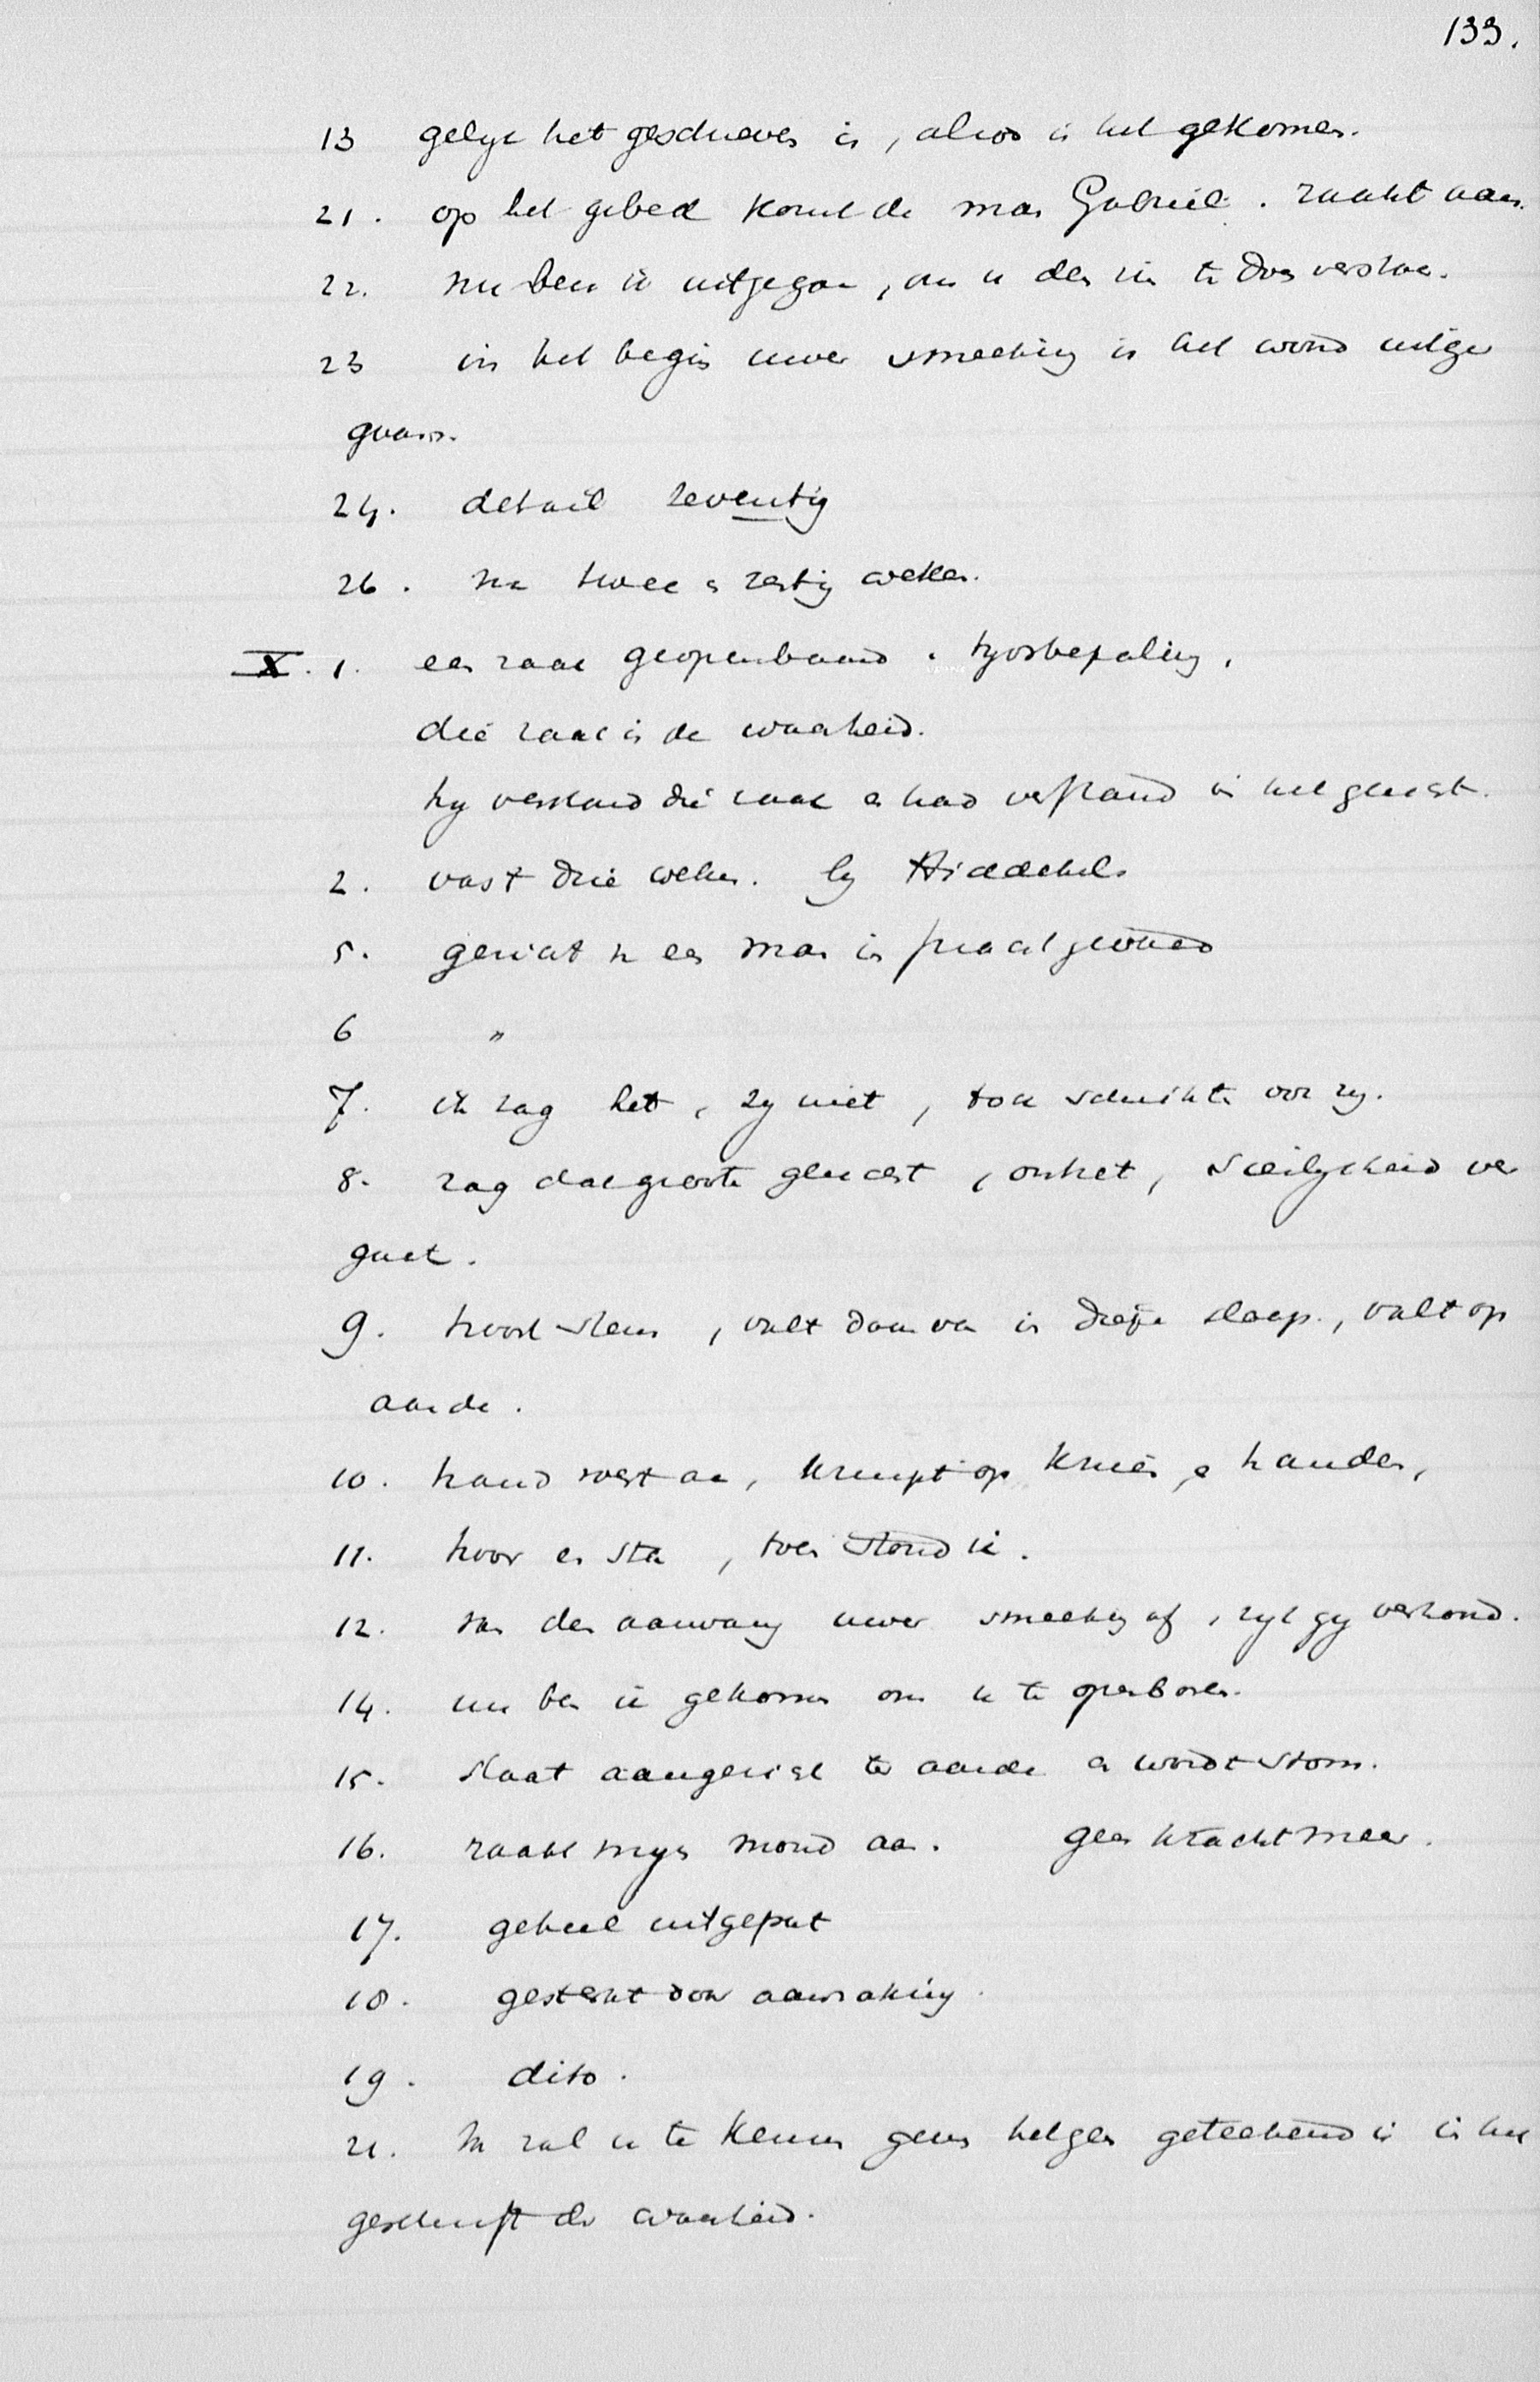 133.
13 gelyk het geschreven is, alzoo is het gekomen.
21. op het gebed komt de man Gabriël. raakt aan.
22. nu ben ik uitgegaan, om u den zin te doen verstaan.
23 in het begin uwer smeeking is het woord uitge
gaan.
24. detail zeventig
26. na twee en zestig weken.
X. 1. een zaak geopenbaard. tydsbepaling.
die zaak is de waarheid.
hy verstond die zaak en had verstand in het gezicht.
2. vast drie weken. by Hiddekel.
5. gezicht v een man in praalgewaad
6 "
7. ik zag het, zy niet, doch schrikte voor zy.
8. zag dat groote gezicht, ontzet, sierlykheid ver
gaat.
9. hoort stem, valt daarvan in diepe slaap, valt op
aarde.
10. hand roert aan, kruipt op knieën en handen,
11. hoor en sta, toen stond ik.
12. van den aanvang uwer smeeking af, zyt gy verhoord.
14. nu ben ik gekomen om u te openbaren.
15. slaat aangezicht ter aarde en wordt stom.
16. raakt myn mond aan. geen kracht meer.
17. geheel uitgeput
18. gesterkt door aanraking.
19. dito.
21. Ik zal u te kennen geven hetgen geteekend is in het
geschrift der waarheid.